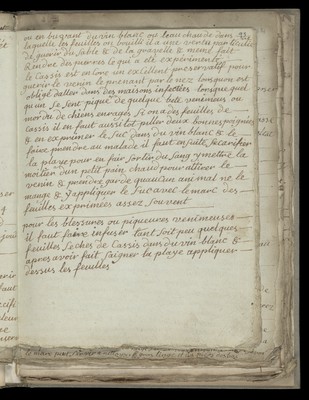 ou en buvant du vin blanc ou eau chaude dans
laquelle les feuilles on bouilli il a une vertu particuliere
de guerir du sable & de la gravelle & meme fait
Rendre des pierres ce qui a eté experimenté
Le Cassis est encore un excellent preservatif pour
guerir le venin le prenant par le nez lorsqu'on est
obligé d'aller dans des maisons infectées lorsque quel
qu'un se sent piqué de quelque bete venimeus ou
mordu de chiens enragés Si on a des feuilles de
Cassis il en faut aussitot piller deux bonnes poignées
& en exprimer le Suc dans du vin blanc & le
faire prendre au malade il faut ensuite Scarifier
la playe pour en faire sortir du Sang y mettre la
moitier d'un petit pain chaud pour attirer le
venin & prendre garde qu'aucun animal ne le
mange & y appliquer le Suc avec le marc des
feuilles exprimées assez souvent
pour les blessures ou piqueures venimeuses
il faut faire infuser tant soit peu quelques
feuilles Seches de Cassis dans du vin blanc &
apres avoir fait saigner la playe appliquer
dessus les feuilles